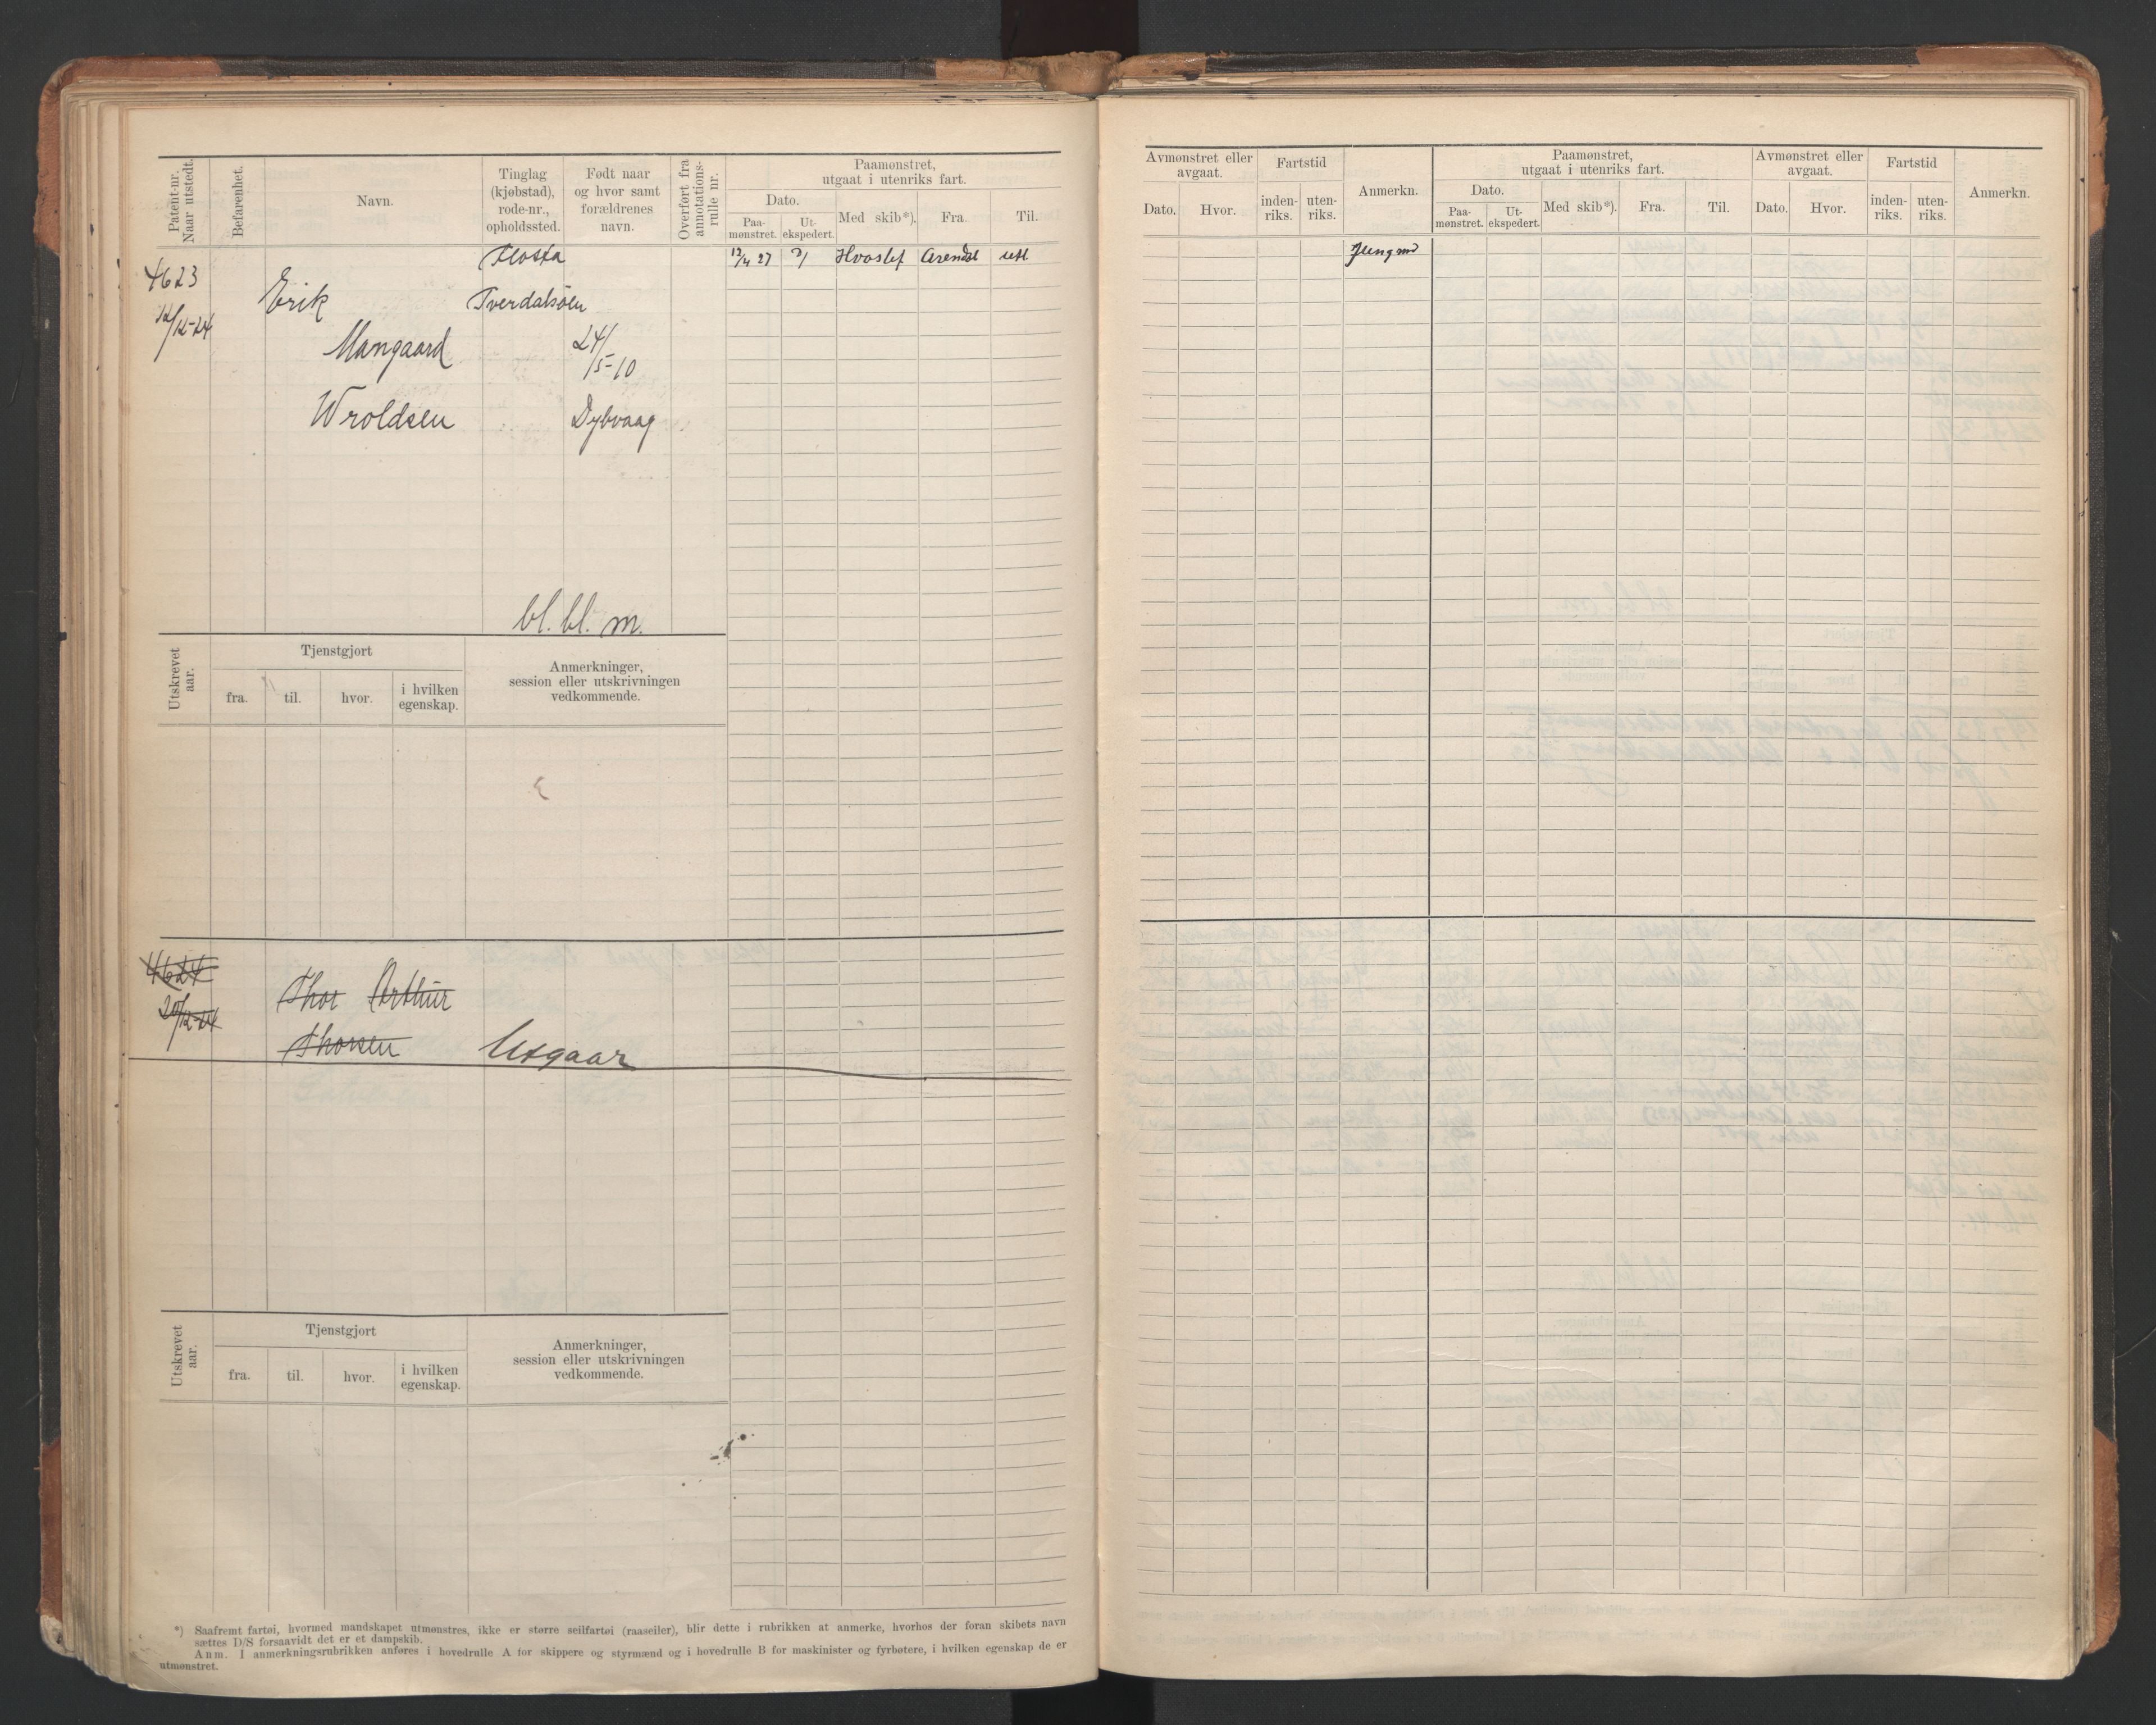 Patent-nr. Naar utstedt.
Befarenhet.
Navn.
Tinglag (kjøbstad), rode-nr., opholdssted.
Født naar og hvor samt forældrenes navn.
Overført fra annotations-rulle nr.
Paamønstret, utgaat i utenriks fart.
Dato.
Paa-mønstret.
Ut-ekspedert.
Med skib*).
Fra.
Til.
4623
12/12-24
Erik
Mangaard
Wroldsen
Flosta
Tverdalsøen
24/5-10
Dybvaag
12/4 27
Hvoslef
Arendal
utl
bl. bl. m.
Utskrevet aar.
Tjenstgjort
fra.
til.
hvor.
i hvilken egenskap.
Anmerkninger, session eller utskrivningen vedkommende.
4624
20/12-24
Thor Arthur
Thorsen
Utgaar
Utskrevet aar.
Tjenstgjort
fra.
til.
hvor.
i hvilken egenskap.
Anmerkninger, session eller utskrivningen vedkommende.
*) Saafremt fartøi, hvormed mandskapet utmønstres, ikke er større seilfartøi (raaseiler), blir dette i rubrikken at anmerke, hvorhos der foran skibets navn
sættes D/S forsaavidt det er et dampskib.
Anm. I anmerkningsrubrikken anføres i hovedrulle A for skippere og styrmænd og i hovedrulle B for maskinister og fyrbøtere, i hvilken egenskap de er
utmønstret.
Avmønstret eller avgaat.
Dato.
Hvor.
Fartstid
inden-riks.
uten-riks.
Anmerkn.
Paamønstret, utgaat i utenriks fart.
Dato.
Paa-mønstret.
Ut-ekspedert.
Med skib*).
Fra.
Til.
Avmønstret eller avgaat.
Dato.
Hvor.
Fartstid
inden-riks.
uten-riks.
Anmerkn.